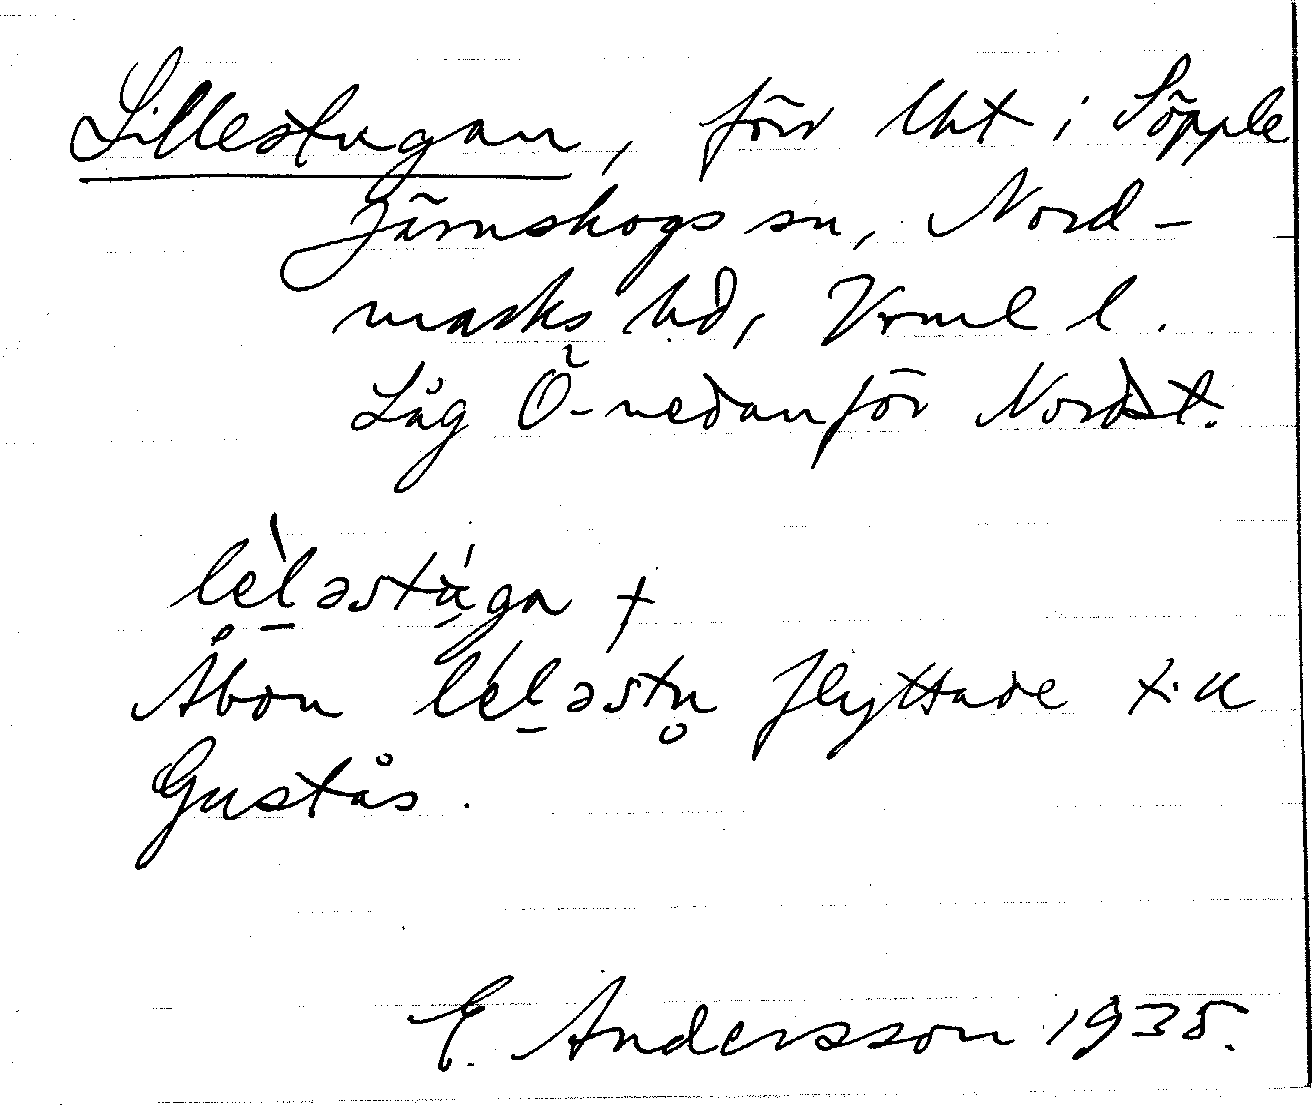 Lillestugan, förr lht i Söpple
Järnskogs sn, Nord-
marks hd, Vrml l.
Låg Ö-nedanför Nordst.
lèl̠əstú̠ga +
Åbon lél̠əstu̥ flyttade t.
Gustås.
E. Andersson 1935.